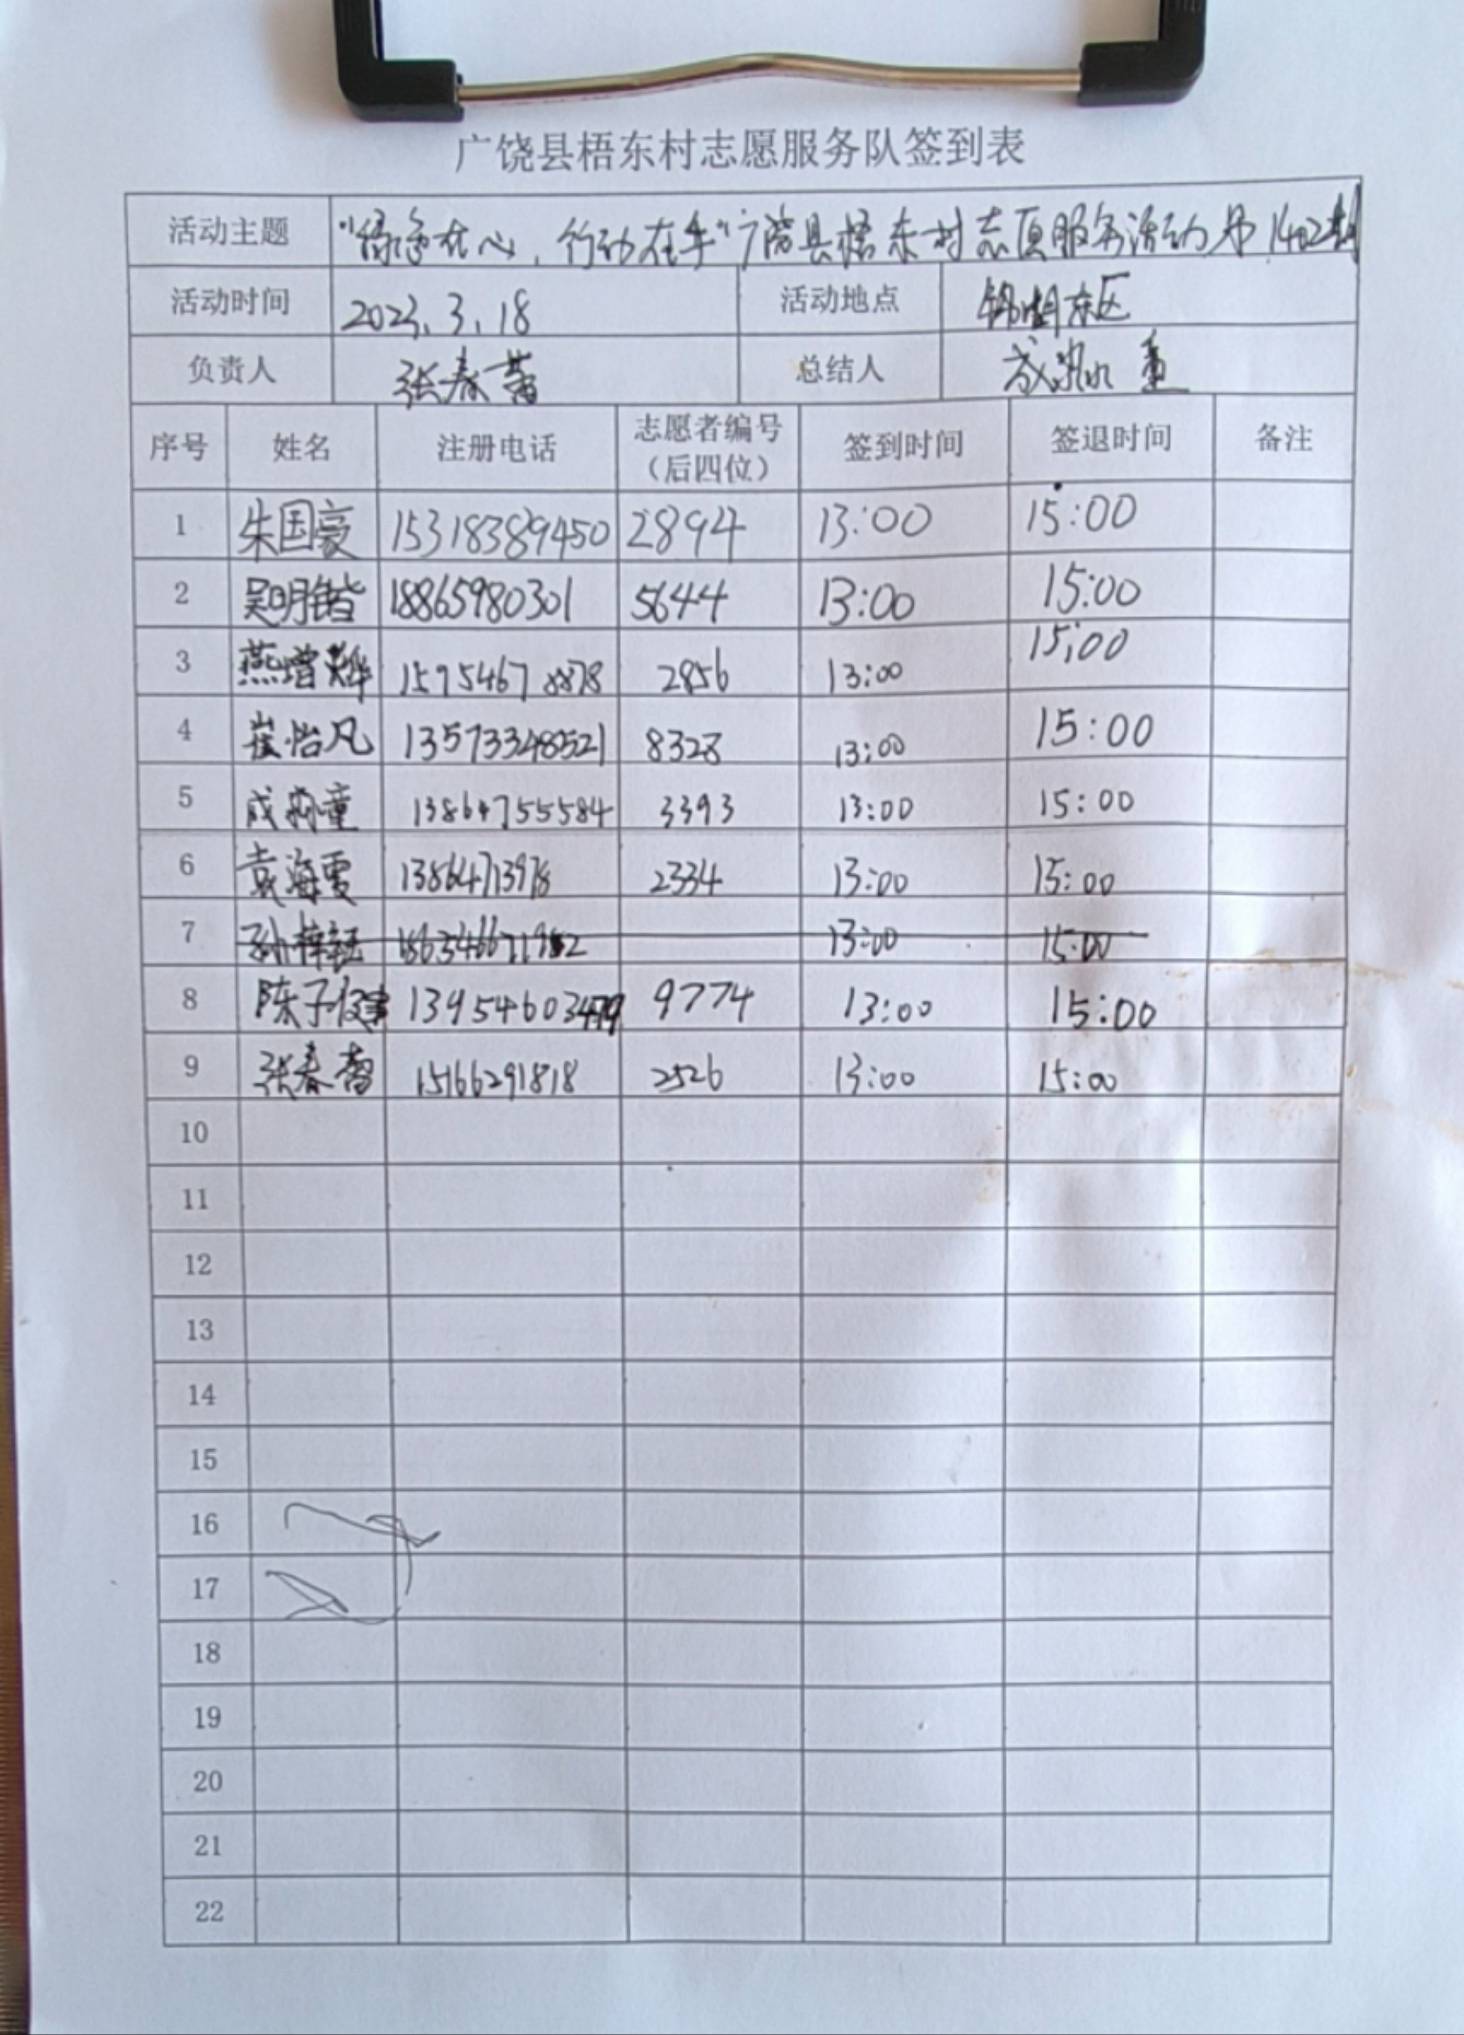 广饶县梧东村志愿服务队签到表
活动主题 "绿意在心，行动在手"广饶县梧东村志愿服务活动第1402期
活动时间 2023.3.18 活动地点 锦湖东区
负责人 张春蕾 总结人
序号 姓名 注册电话 志愿者编号（后四位） 签到时间 签退时间 备注
1 朱国豪 15318389450 2894 13:00 15:00
2 吴明锴 18865980301 5644 13:00 15:00
3 燕增烨 15954678878 2856 13:00 15:00
4 崔怡凡 13573348521 8328 13:00 15:00
5 13864755584 3393 13:00 15:00
6 袁海雯 13864713978 2334 13:00 15:00
7 13:00 15:00
8 陈子 13954603479 9774 13:00 15:00
9 张春蕾 15166291818 2526 13:00 15:00
10
11
12
13
14
15
16
17
18
19
20
21
22